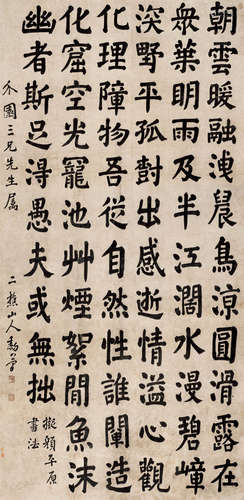 朝雲暖融洩晨鳥涼圓滑露在
衆葉明雨及半江濶水漫碧嶂
深野平孤對出感逝情溢心觀
化理障物吾從自然性誰闡造
化窟空光寵池艸煙絮閒魚沫
幽者斯足得愚夫或無拙
擬顏平原
書法
園三兄先生屬
二樵山人